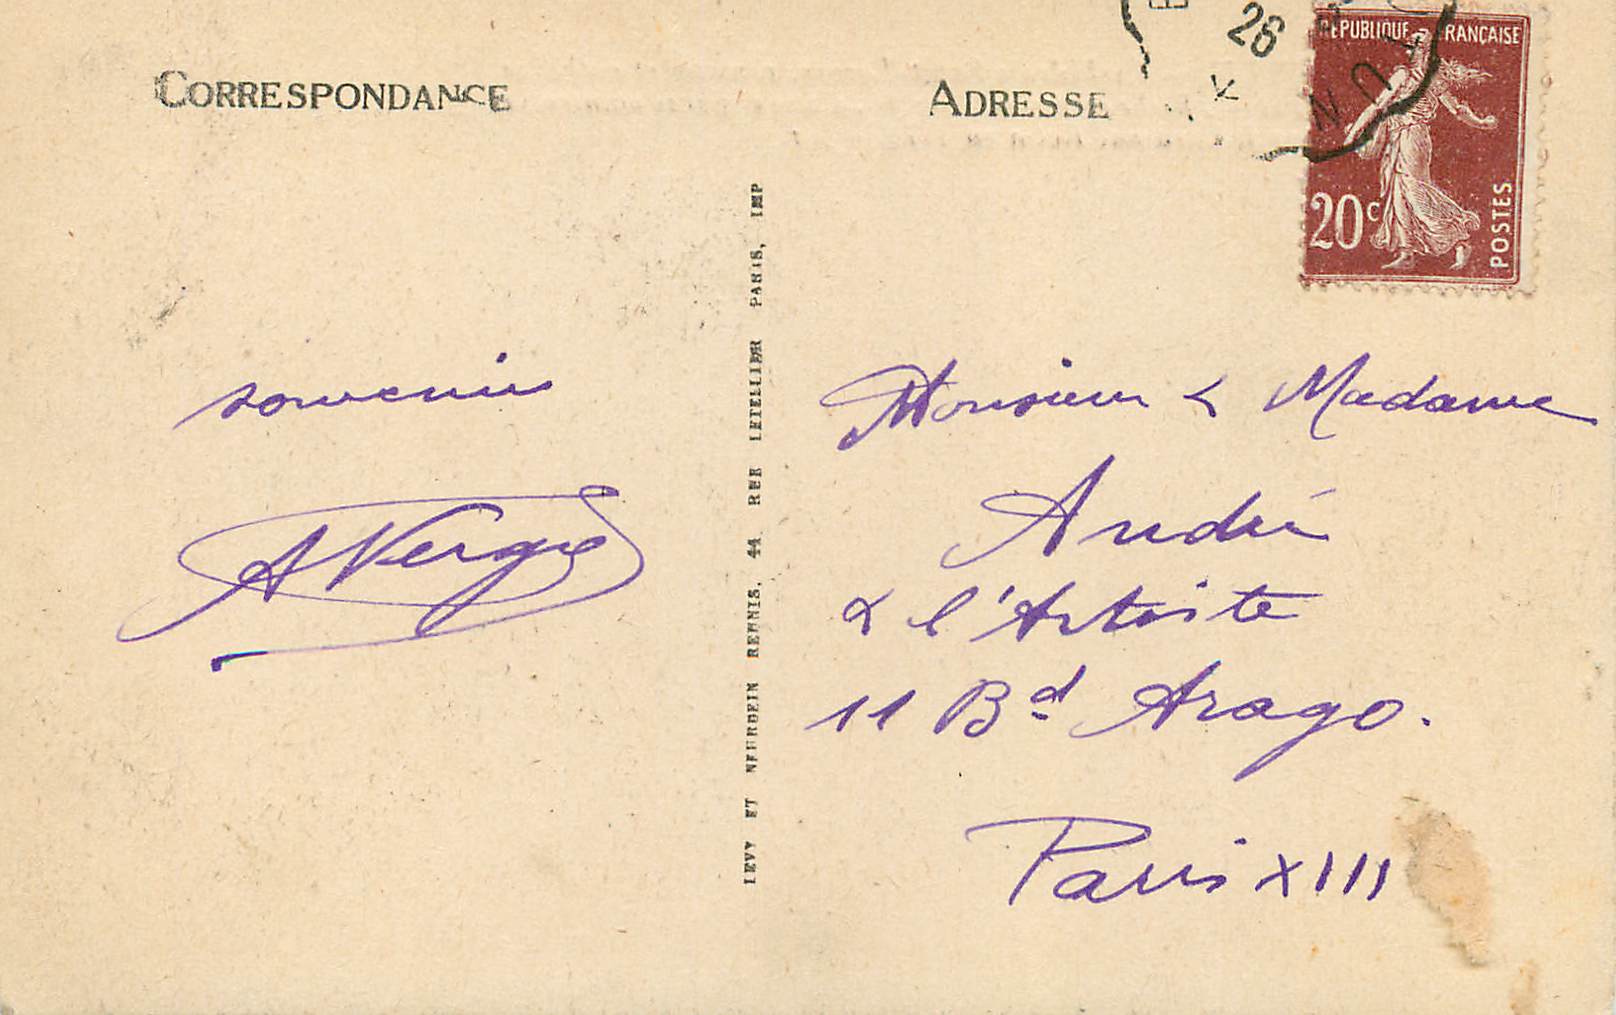 CORRESPONDANCE
ADRESSE
26
RÉPUBLIQUE FRANÇAISE
20c
POSTES
souvenir
A Vergne
LEVY ET NEURDEIN REUNIS, 44 RUE LETELLIER PARIS, IMP
Monsieur & Madame
André
& l'Artiste
11 Bd Arago.
Paris XIII